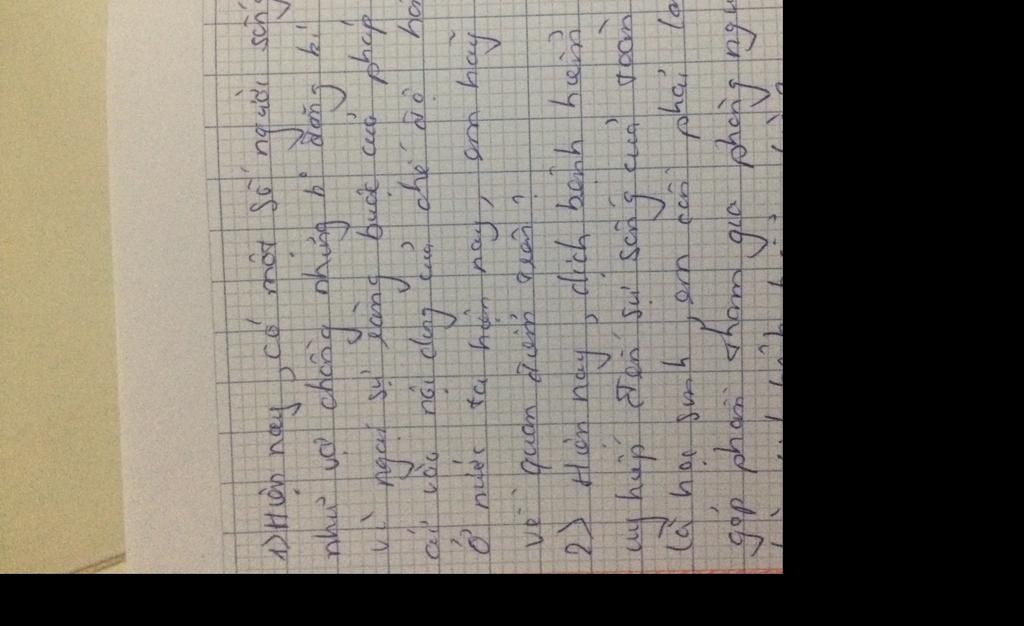 1) Hiện nay, có một số người sống
như vợ chồng nhưng k° đăng kí
vì ngại sự ràng buộc của pháp
cứ vào nội dung của chế độ hô
ở nước ta hiện nay, em hãy
về quan điểm trên?
2) Hiện nay, dịch bệnh hiểm
uy hiếp đến sự sống của toàn
là học sinh, em cần phải là
góp phần tham gia phòng ng